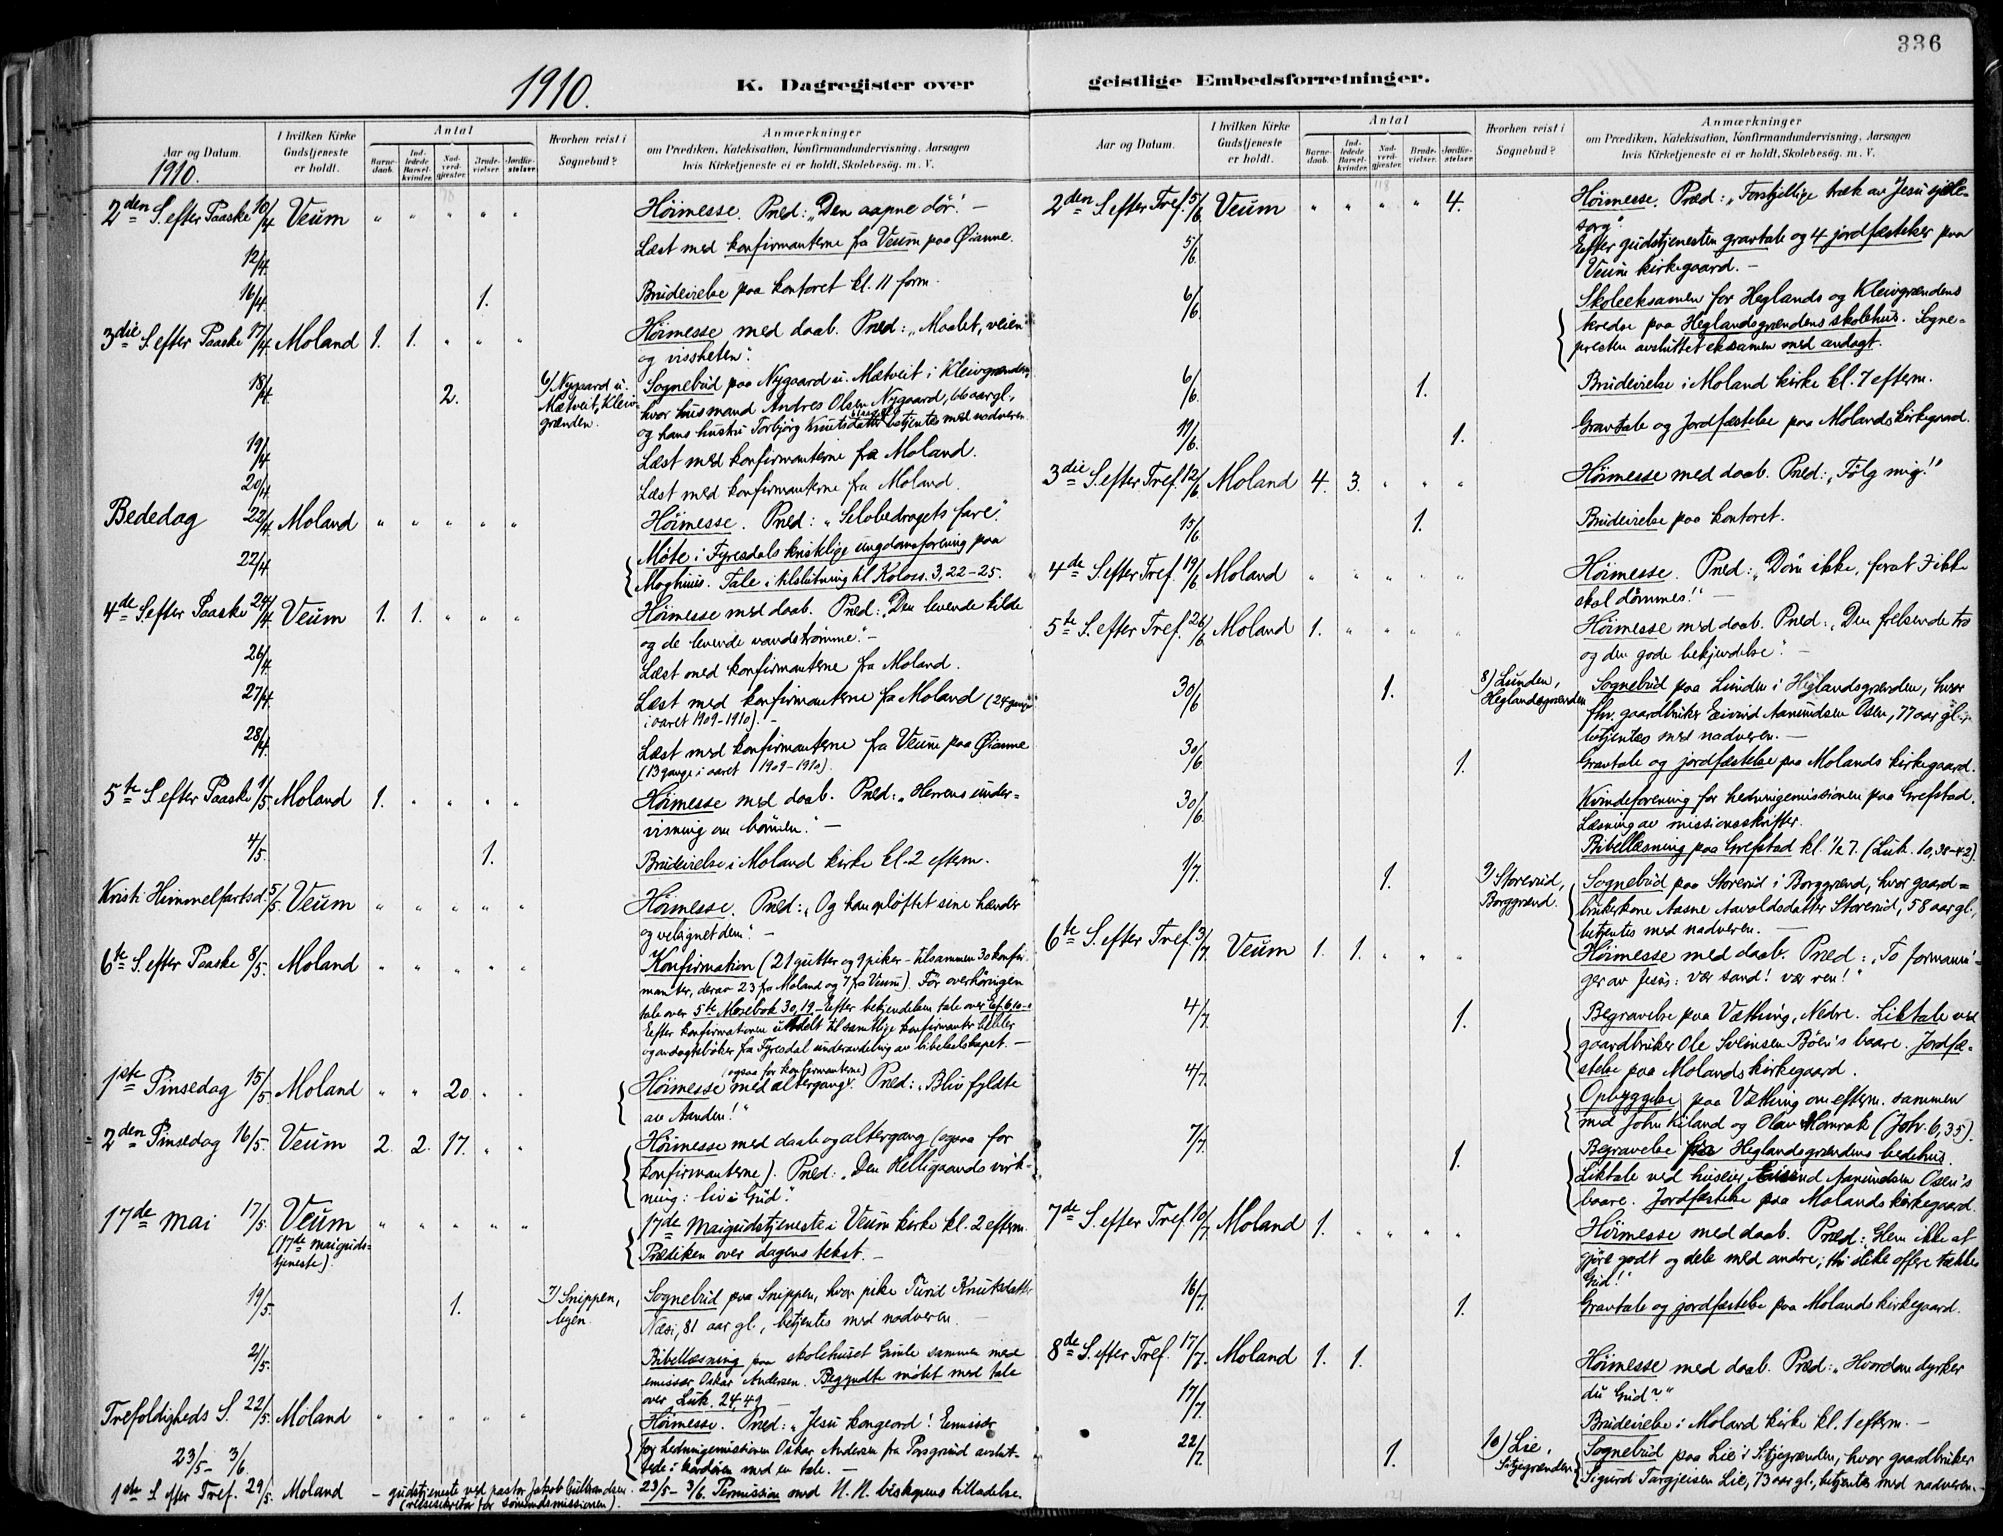 336
1910.
K. Dagregister over
geistlige Embedsforretninger.
Aar og Datum.
1910.
I hvilken Kirke Gudstjeneste er holdt.
Antal
Barnedaab.
Indledede Barselkvinder.
Nadverdgjæster.
Brudevielser.
Jordfæstelser.
Hvorhen reist i Sognebud?
Anmærkninger
om Prædiken, Katekisation, Konfirmandundervisning, Aarsagen
hvis Kirketjeneste ei er holdt, Skolebesøg. m. V.
2den S. efter Paaske 10/4 Veum " " " " " Høimesse. Præd: "Den aapne dör." —
12/4 Læst med konfirmanterne fra Veum paa Øianne.
16/4 1. Brudevielse paa kontoret kl. 11 form.
3die S. efter Paaske 17/4 Moland 1. 1. " " " Høimesse med daab. Præd: "Maalet, veien
og vissheten".
18/4 2. 6) Nygaard u. Mætveit, Kleivgrænden. Sognebud paa Nygaard u. Mætveit i Kleivgrænden,
hvor husmand Andres Olsen Nygaard, 66 aar gl.,
og hans hustru Torbjörg Knutsdatter betjentes med nadveren
19/4 Læst med konfirmanterne fra Moland.
20/4 Læst med konfirmanterne fra Moland.
Bededag 22/4 Moland " " " " " Høimesse. Præd: "Selvbedragets fare".
22/4 Møte i Fyresdals kristlige ungdomsforening paa
Moghuus. Tale i tilslutning til Koloss. 3, 22-25.
4de S. efter Paaske 24/4 Veum 1. 1. " " " Høimesse med daab. Præd: "Den levende kilde
og de levende vandströmme." —
26/4 Læst med konfirmanterne fra Moland.
27/4 Læst med konfirmanterne fra Moland (24 ganger
i aaret 1909-1910). —
28/4 Læst med konfirmanterne fra Veum paa Øianne
(13 gange i aaret 1909-1910).
5te S. efter Paaske 1/5 Moland 1. " " " " Høimesse med daab. Præd: "Herrens under-
visning om bönnen." —
4/5. 1. Brudevielse i Moland kirke kl. 2 efterm.
Kristi Himmelfartsd. 5/5. Veum " " " " " Høimesse. Præd: "Og han opløftet sine hænder
og velsignet dem". —
6te S. efter Paaske 8/5. Moland " " " " " Konfirmation (21 gutter og 9 piker - tilsammen 30 konfir-
manter, derav 23 fra Moland og 7 fra Veum). Før overhöringen
tale over 5te Mosebok 30,19. - Efter bekjendelsen tale over
Efter konfirmationen utdelt til samtlige konfirmanter bibler
og andagtsböker fra Fyresdal underavdeling av bibelselskapet. —
1ste Pinsedag 15/5. Moland " " 20 " " Høimesse med altergang (ogsaa for konfirmanterne). Præd: "Bliv fyldte
av Aanden!"
2den Pinsedag 16/5. Veum 2. 2. 17. " " Høimesse med daab og altergang (ogsaa for
konfirmanterne). Præd: "Den Helligaands virk-
ning: liv i Gud".
17de mai 17/5. Veum (17de maigudstjeneste). " " " " " 17de maigudstjeneste i Veum kirke kl. 2 efterm.
Prædiken over dagens tekst. —
19/5. 1. 7) Snippen, byen. Sognebud paa Snippen, hvor pike Turid Knutsdatter
Næsi, 81 aar gl., betjentes med nadveren. —
21/5. Bibellæsning paa skolehuset Grimle sammen med
emissær Oskar Andersen. Begyndte mötet med tale
over Luk. 24,49.
Trefoldigheds S. 22/5. Moland " " " " " Høimesse. Præd: "Jesu kongeord! Emissær
for hedningemissionen Oskar Andersen fra Porsgrund avslut-
tede i kordøren med en tale. —
23/5 - 3/6.
1ste S. efter Tref. 29/5. Moland - gudstjeneste ved pastor Jakob Gulbrandsen. 23/5 - 3/6. Permission med H. H. biskopens tilladelse.
(reisesekretær for sömandsmissionen).
Aar og Datum.
I hvilken Kirke Gudstjeneste er holdt.
Antal
Barnedaab.
Indledede Barselkvinder.
Nadverdgjæster.
Brudevielser.
Jordfæstelser.
Hvorhen reist i Sognebud?
Anmærkninger
om Prædiken, Katekisation, Konfirmandundervisning, Aarsagen
hvis Kirketjeneste ei er holdt, Skolebesøg. m. V.
118
2den S. efter Tref. 5/6. Veum " " " " 4. Høimesse. Præd: "Forskjellige træk av Jesu sjæle-
sorg".
5/6. Efter gudstjenesten gravtale og 4 jordfæstelser paa
Veum kirkegaard. —
6/6. Skoleeksamen for Heglands og Kleivgrændens
kredse paa Heglandsgrændens skolehus. Sogne-
presten avsluttet eksamen med andagt.
6/6. 1. Brudevielse i Moland kirke kl. 7 efterm.
11/6. 1. Gravtale og Jordfæstelse paa Molands kirkegaard.
3die S. efter Tref. 12/6. Moland 4. 3. " " " Høimesse med daab. Præd: "Følg mig!"
15/6. 1. Brudevielse paa kontoret.
4de S. efter Tref. 19/6. Moland " " " " " Høimesse. Præd: "Döm ikke, forat I ikke
skal dømmes!" —
5te S. efter Tref. 26/6. Moland 1. " " " " Høimesse med daab. Præd: "Den frelsende tro
og den gode bekjendelse". —
30/6. 1. 8) Lunden, Heglandsgrænden Sognebud paa Lunden i Heglandsgrænden, hvor
fhv. gaardbruker Eivind Aamundsen Osen, 77 aar gl.,
betjentes med nadveren. —
30/6. 1. Gravtale og jordfæstelse paa Molands kirkegaard.
30/6. Kvindeforening for hedningemissionen paa Grefstad.
Læsning av missionsskrifter.
Bibellæsning paa Grefstad kl. 1/2 7. (Luk. 10,38-42).
1/7. 1. 9) Storerud, Borggrænd. Sognebud paa Storerud i Borggrænd, hvor gaard=
brukerkone Aasne Aavoldsdatter Storerud, 58 aar gl.,
betjentes med nadveren. —
6te S. efter Tref. 3/7. Veum 1. 1. " " " Høimesse med daab. Præd: "To formanin-
ger av Jesus: vær sand! vær ren!"
4/7. 1. Begravelse paa Vætting, Nedre. Liktale ved
gaardbruker Ole Sveinsen Böen's baare. Jordfæ-
stelse paa Molands kirkegaard.
4/7. Opbyggelse paa Vætting om efterm. sammen
med John Kiland og Olav Momrak (Joh. 6,35).
7/7. 1. Begravelse fra Heglandsgrændens bedehus.
Liktale ved huseier Eivind Aamundsen Osen's
baare. Jordfæstelse paa Molands kirkegaard.
7de S. efter Tref. 10/7. Moland 1. " " " " Høimesse med daab. Præd: Glem ikke at
gjöre godt og dele med andre; thi slike offere tækkes
Gud!"
16/7. 1. Gravtale og jordfæstelse paa Molands kirkegaard.
8de S. efter Tref. 17/7. Moland 1. 1. Høimesse med daab. Præd: "Hvordan dyrker
du Gud?"
17/7. Brudevielse i Moland kirke kl. 1 efterm. —
22/7. 1. 10) Lie, Sitjegrænden. Sognebud paa Lie i Sitjegrænden, hvor gaardbruker
Sigurd Targjeisen Lie, 73 aar gl., betjentes med nadveren. —
121